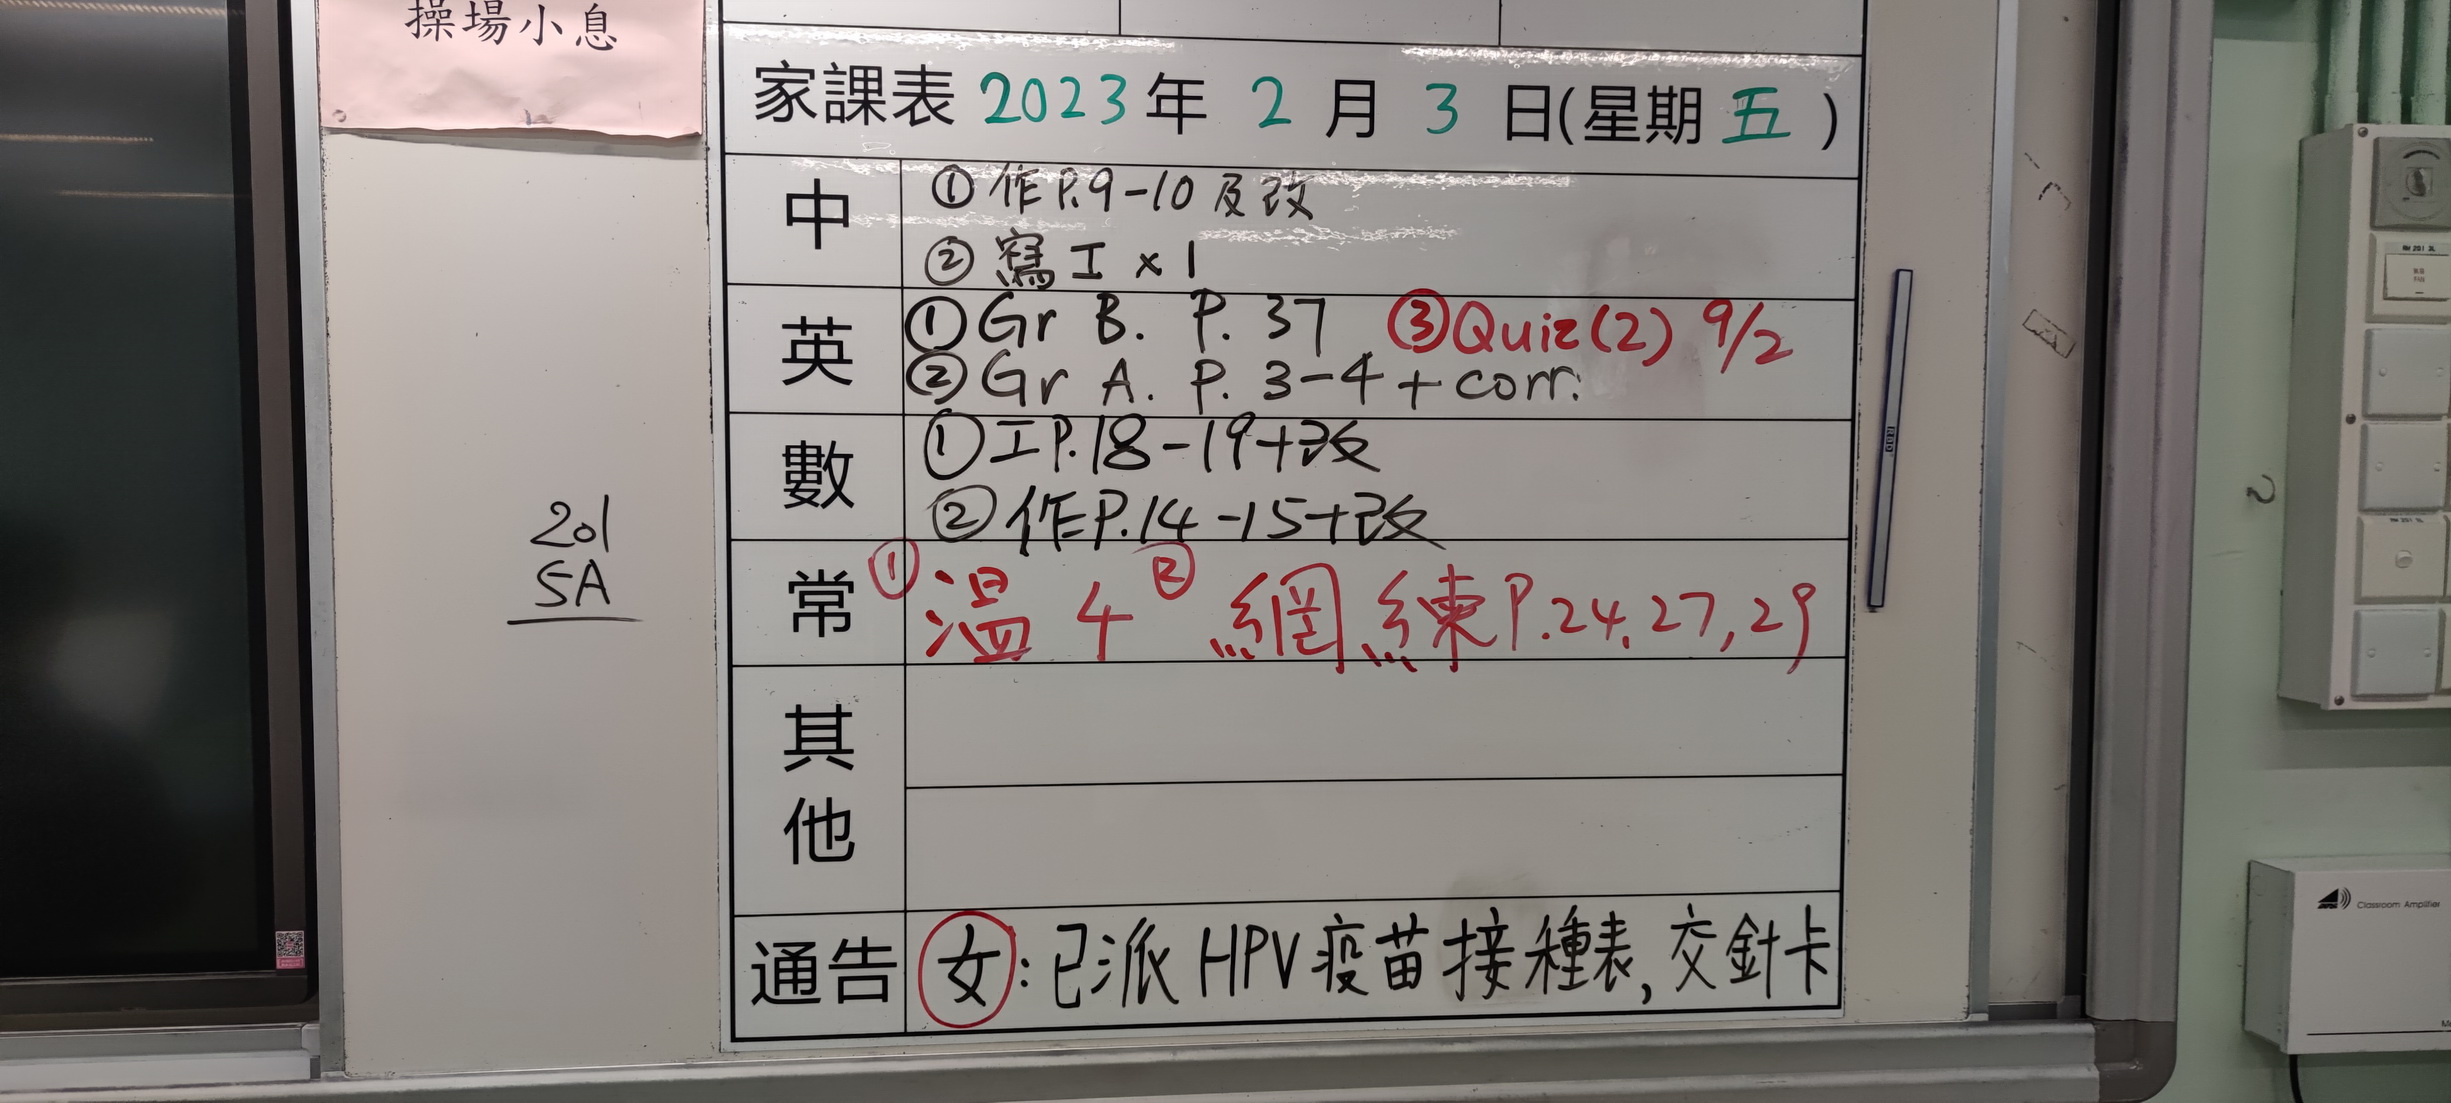 操場小息
家課表 2023年 2月 3日(星期五)
中
①作P.9-10及改
②寫工x1
英
①Gr B. P. 37 ③Quiz(2) 9/2
②Gr A. P. 3-4 + corr.
數
①工P.18-19+改
②作P.14-15+改
常
①溫4 ②網練P.24,27,29
其他
通告
女:已派HPV疫苗接種表,交針卡
201
5A
Classroom Amplifier